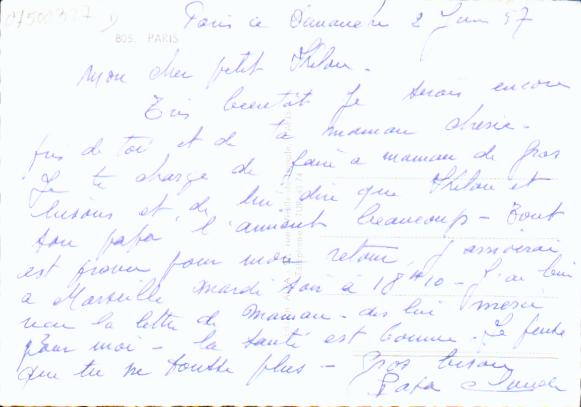 07500327
BOS. PARIS
Paris ce Dimanche 2 Juin 57
Mon cher petit
Très bientôt je serais encore
près de toi et de ta maman chérie.
Je te charge de faire à maman de gros
bisous et de lui dire que et
son papa l'aiment beaucoup - Tout
est prévu pour mon retour, j'arriverai
à Marseille mardi soir à 18H10 - J'ai bien
reçu la lettre de Maman - dis lui merci
pour moi - la santé est bonne. Je pense
que tu ne tousse plus - gros bisous
Papa